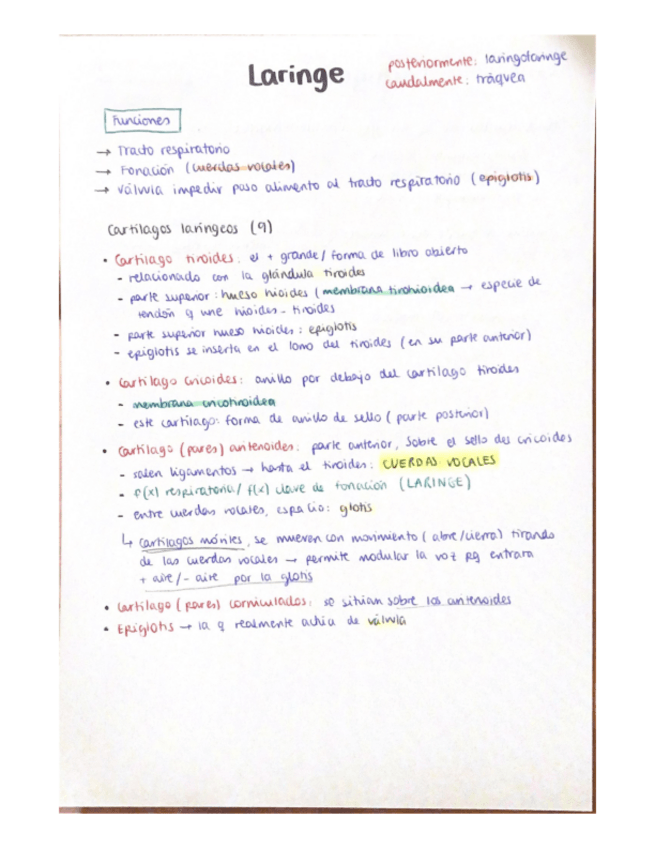 Laringe
posteriormente: laringofaringe
caudalmente: tráquea
Funciones
→ Tracto respiratorio
→ Fonación (cuerdas vocales)
→ válvula impedir paso alimento al tracto respiratorio (epiglotis)
Cartílagos laríngeos (9)
• Cartílago tiroides: el + grande/ forma de libro abierto
- relacionado con la glándula tiroides
- parte superior: hueso hioides (membrana tirohioidea → especie de
tendón q une hioides - tiroides
- parte superior hueso hioides: epiglotis
- epiglotis se inserta en el lomo del tiroides (en su parte anterior)
• Cartílago cricoides: anillo por debajo del cartílago tiroides
- membrana cricotiroidea
- este cartílago: forma de anillo de sello (parte posterior)
• Cartílago (pares) aritenoides: parte anterior, sobre el sello des cricoides
- salen ligamentos → hasta el tiroides: CUERDAS VOCALES
- f(x) respiratoria/ f(x) clave de fonación (LARINGE)
- entre cuerdas vocales, espacio: glotis
↳ Cartílagos móviles, se mueven con movimiento (abre/cierra) tirando
de las cuerdas vocales → permite modular la voz pq entrara
+ aire/- aire por la glotis
• Cartílago (pares) corniculados: se sitúan sobre los aritenoides
• Epiglotis → la q realmente actúa de válvula